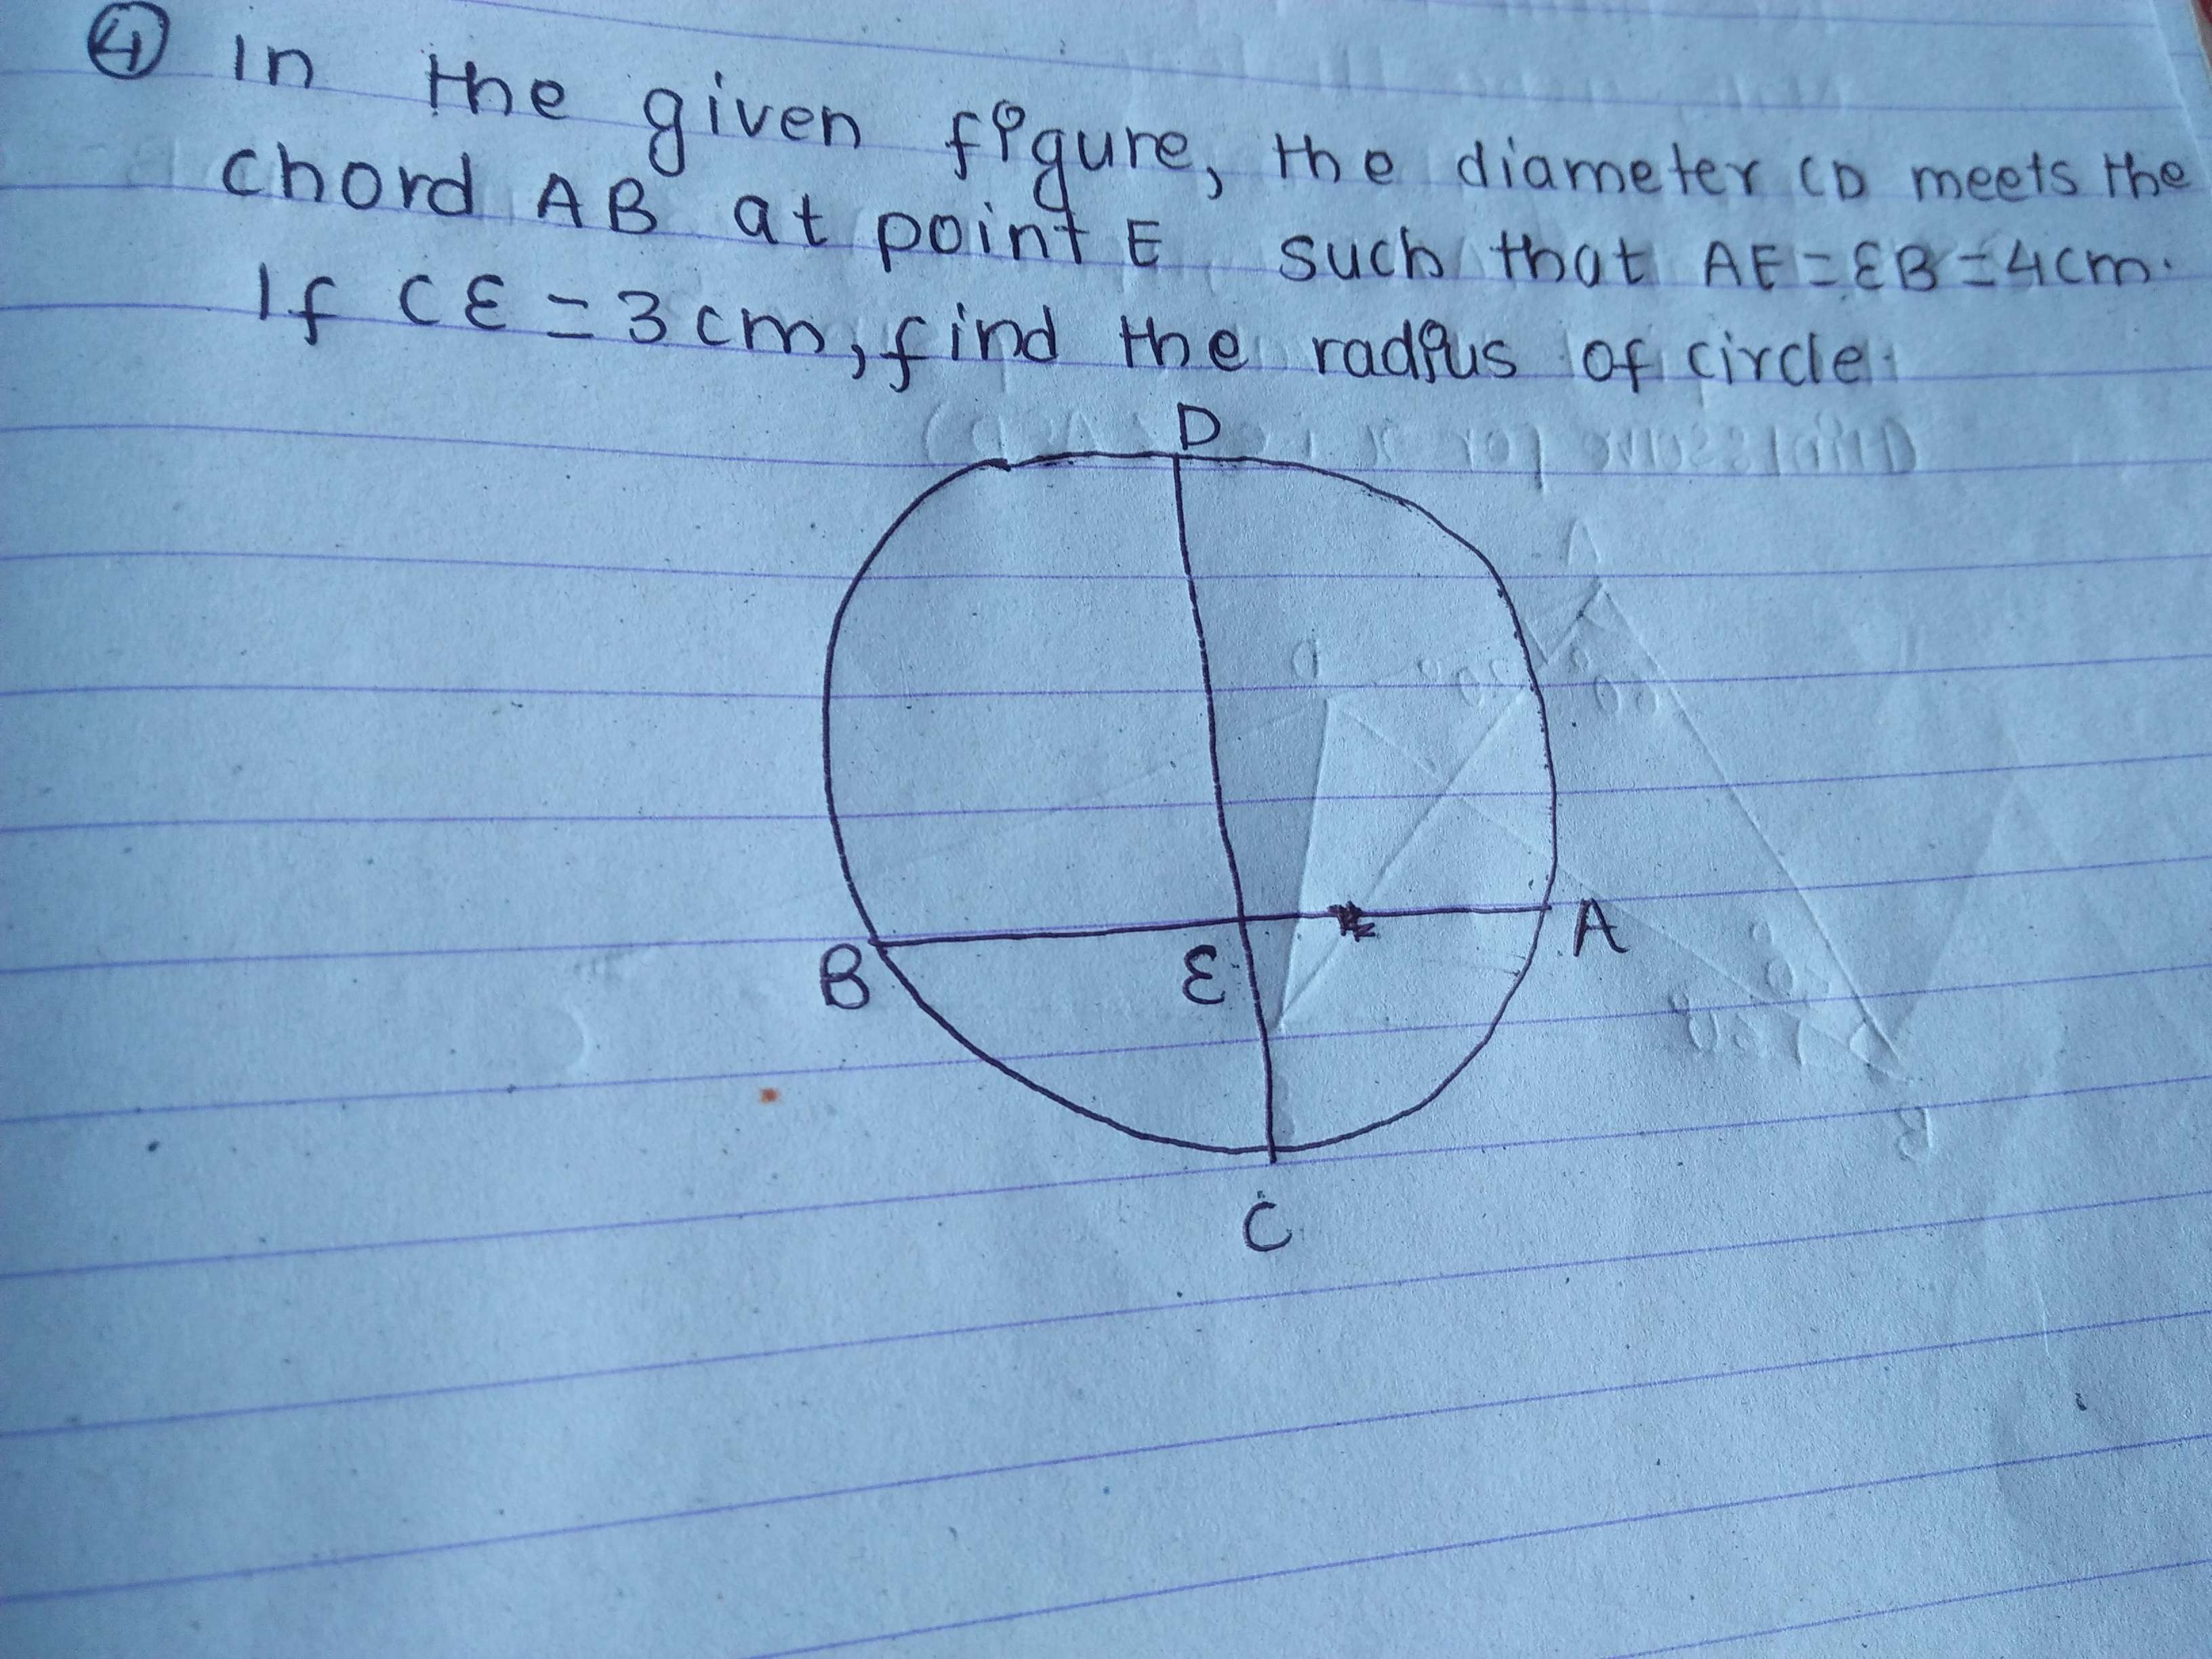 ④ In the given figure, the diameter CD meets the
chord AB at point E such that AE=EB=4cm.
If CE=3cm, find the radius of circle.
D
B
E
A
C